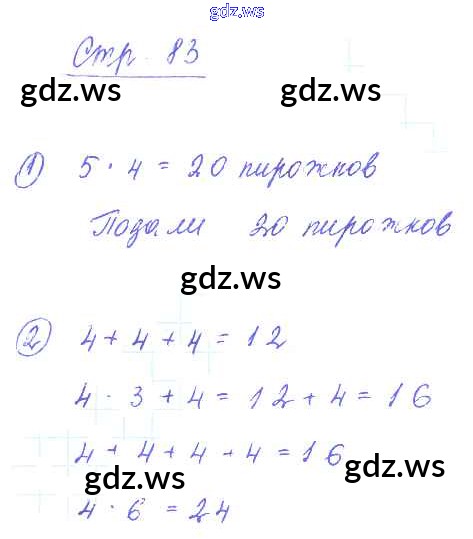 gdz.ws
Стр. 83
gdz.ws gdz.ws
1) 5 · 4 = 20 пирожков
Подали 20 пирожков
gdz.ws
2) 4 + 4 + 4 = 12
4 · 3 + 4 = 12 + 4 = 16
4 + 4 + 4 + 4 = 16
gdz.ws gdz.ws
4 · 6 = 24